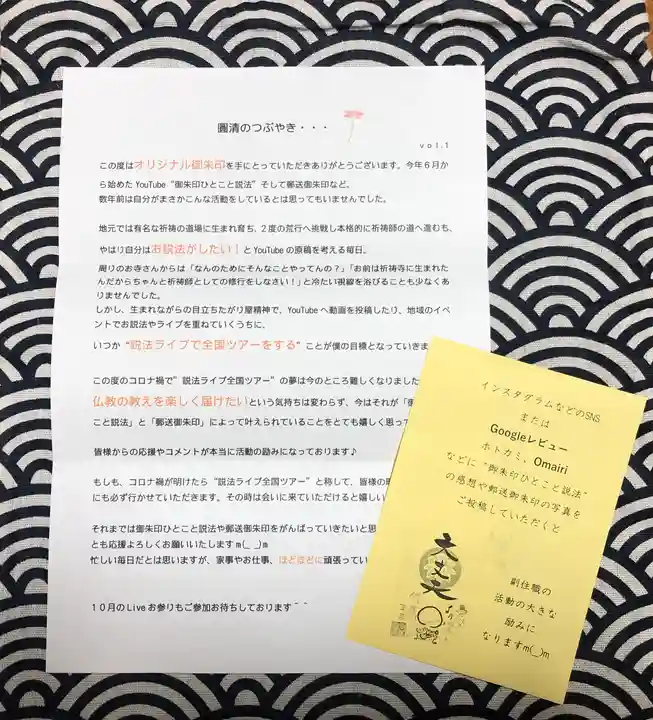 圓清のつぶやき・・・
vol.1
この度はオリジナル御朱印を手にとっていただきありがとうございます。今年6月か
ら始めた YouTube“御朱印ひとこと説法”そして郵送御朱印など。
数年前は自分がまさかこんな活動をしているとは思ってもいませんでした。
地元では有名な祈祷の道場に生まれ育ち、2度の荒行へ挑戦し本格的に祈祷師の道へ進むも、
やはり自分はお説法がしたい！と YouTube の原稿を考える毎日。
周りのお寺さんからは「なんのためにそんなことやってんの？」「お前は祈祷寺に生まれた
んだからちゃんと祈祷師としての修行をしなさい！」と冷たい視線を浴びることも少なくあ
りませんでした。
しかし、生まれながらの目立ちたがり屋精神で、YouTube へ動画を投稿したり、地域のイベ
ントでお説法やライブを重ねていくうちに、
いつか“説法ライブで全国ツアーをする”ことが僕の目標となっていきま
この度のコロナ禍で”説法ライブ全国ツアー”の夢は今のところ難しくなりました
仏教の教えを楽しく届けたいという気持ちは変わらず、今はそれが「
こと説法」と「郵送御朱印」によって叶えられていることをとても嬉しく思って
皆様からの応援やコメントが本当に活動の励みになっております♪
もしも、コロナ禍が明けたら“説法ライブ全国ツアー”と称して、皆様の
にも必ず行かせていただきます。その時は会いに来ていただけると嬉しい
それまでは御朱印ひとこと説法や郵送御朱印をがんばっていきたいと思
とも応援よろしくお願いいたしますm(_ _)m
忙しい毎日だとは思いますが、家事やお仕事、ほどほどに頑張ってい
10月の Live お参りもご参加お待ちしております＾＾
インスタグラムなどのSNS
または
Googleレビュー
ホトカミ、Omairi
などに“御朱印ひとこと説法”
の感想や郵送御朱印の写真を
ご投稿していただくと
大丈夫
副住職の
活動の大きな
励みに
なりますm(_)m